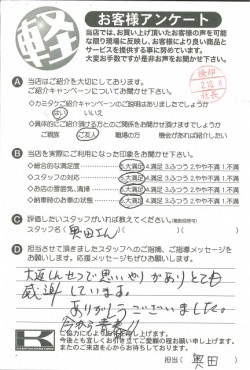 軽
お客様アンケート
当店では、お買い上げ頂いたお客様の声を可能
な限り現場に反映し、お客様により良い商品と
サービスを提供する事に努めています。
大変お手数ですが是非お声をお聞かせ下さい。
A 当店はご紹介を大切にしております。
ご紹介キャンペーンについてお聞かせ下さい。
はい いいえ
ご親族 ご友人 職場の方 機会があれば紹介したい
B 当店を実際にご利用になった印象をお聞かせ下さい。
◇総合的な満足度 5.大満足 4.満足 3.ふつう 2.やや不満 1.不満
◇スタッフの対応 5.大満足 4.満足 3.ふつう 2.やや不満 1.不満
◇お店の雰囲気、清掃 5.大満足 4.満足 3.ふつう 2.やや不満 1.不満
◇納車時のお車の状態 5.大満足 4.満足 3.ふつう 2.やや不満 1.不満
C 評価したいスタッフがいれば教えてください。
スタッフ名( 奥田さん )
D 担当させて頂きましたスタッフへのご指摘、ご指導メッセージを
お願いします。応援メッセージもぜひお願いします。
大変しんせつで思いやりがありとても
感謝しています。
ありがとうございました。
K
ご協力に心よりお礼を申し上げます。
今後とも宜しくお引き立てご愛顧の程お願い申し上げます。
またのご来店を心からお待ちしております。
担当( 奥田 )